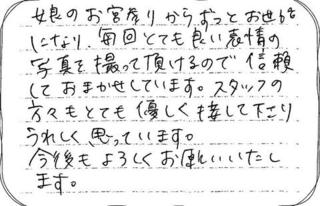 娘のお宮参りからずっとお世話
になり、毎回とても良い表情の
写真を撮って頂けるので信頼
しておまかせしています。スタッフの
方々もとても優しく接して下さり
うれしく思っています。
今後もよろしくお願いいたし
ます。